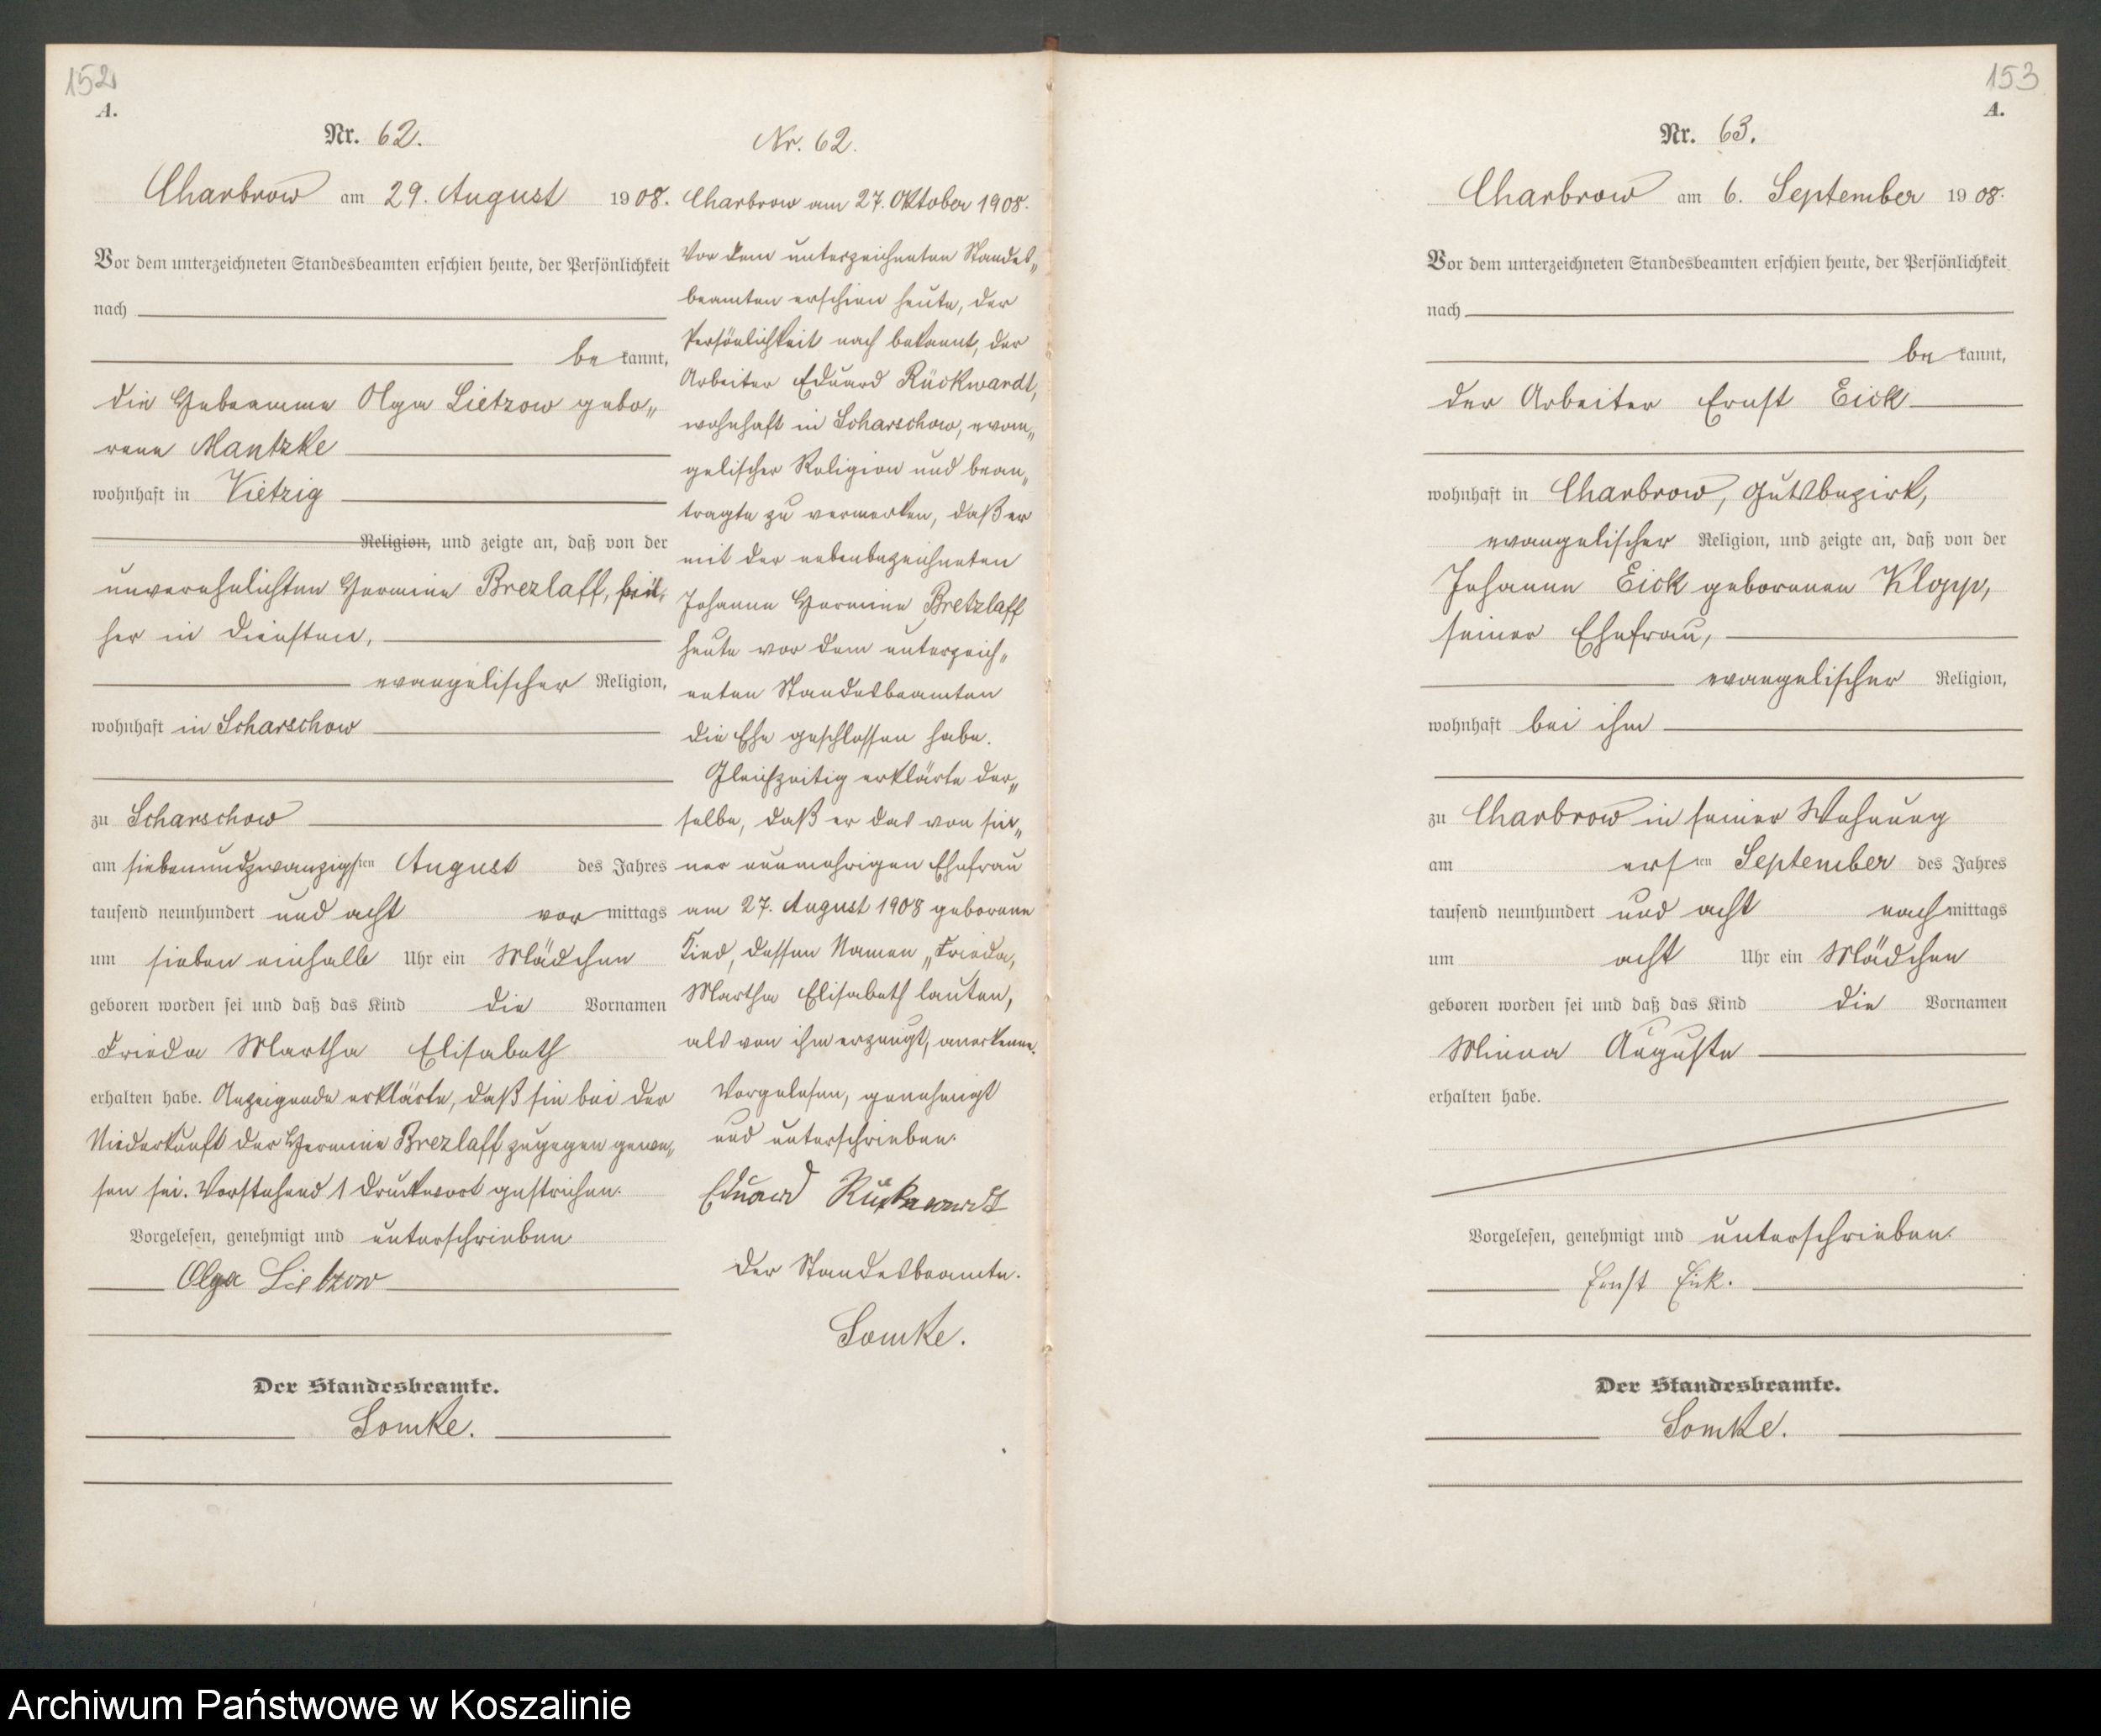 152
A.
Nr. 62.
Charbrow am 29. August 1908.
Vor dem unterzeichneten Standesbeamten erschien heute, der Persönlichkeit
nach
be kannt,
die Hebeamme Olga Lietzow gebo„
rene Mantzke
wohnhaft in Vietzig
Religion, und zeigte an, daß von der
unverehelichten Hermine Brezlaff, frü„
her in Diensten,
evangelischer Religion,
wohnhaft in Scharschow
zu Scharschow
am siebenundzwanzigsten August des Jahres
tausend neunhundert und acht vor mittags
um sieben einhalb Uhr ein Mädchen
geboren worden sei und daß das Kind die Vornamen
Frieda Martha Elisabeth
erhalten habe. Anzeigende erklärte, daß sie bei der
Niederkunft der Hermine Brezlaff zugegen gewe„
sen sei. Vorstehend 1 Druckwort gestrichen.
Vorgelesen, genehmigt und unterschrieben
Olga Lietzow
Der Standesbeamte.
Somke.
Nr. 62.
Charbrow am 27. Oktober 1908.
Vor dem unterzeichneten Standes„
beamten erschien heute, der
Persönlichkeit nach bekannt, der
Arbeiter Eduard Rückwardt,
wohnhaft in Scharschow, evan„
gelischer Religion und bean„
tragte zu vermerken, daß er
mit der nebenbezeichneten
Johanne Hermine Bretzlaff
heute vor dem unterzeich„
neten Standesbeamten
die Ehe geschlossen habe.
Gleichzeitig erklärte der„
selbe, daß er das von sei„
ner nunmehrigen Ehefrau
am 27. August 1908 geborene
Kind, dessen Namen „Frieda,
Martha Elisabeth lauten,
als von ihm erzeugt, anerkenne.
Vorgelesen, genehmigt
und unterschrieben.
Eduard Rückwardt
Der Standesbeamte.
Somke.
153
A.
Nr. 63.
Charbrow am 6. September 1908.
Vor dem unterzeichneten Standesbeamten erschien heute, der Persönlichkeit
nach
be kannt,
der Arbeiter Ernst Eick
wohnhaft in Charbrow, Gutsbezirk,
evangelischer Religion, und zeigte an, daß von der
Johanne Eick geborenen Klopp,
seiner Ehefrau,
evangelischer Religion,
wohnhaft bei ihm
zu Charbrow in seiner Wohnung
am ersten September des Jahres
tausend neunhundert und acht nach mittags
um acht Uhr ein Mädchen
geboren worden sei und daß das Kind die Vornamen
Minna Auguste
erhalten habe.
Vorgelesen, genehmigt und unterschrieben.
Ernst Eick.
Der Standesbeamte.
Somke.
Archiwum Państwowe w Koszalinie